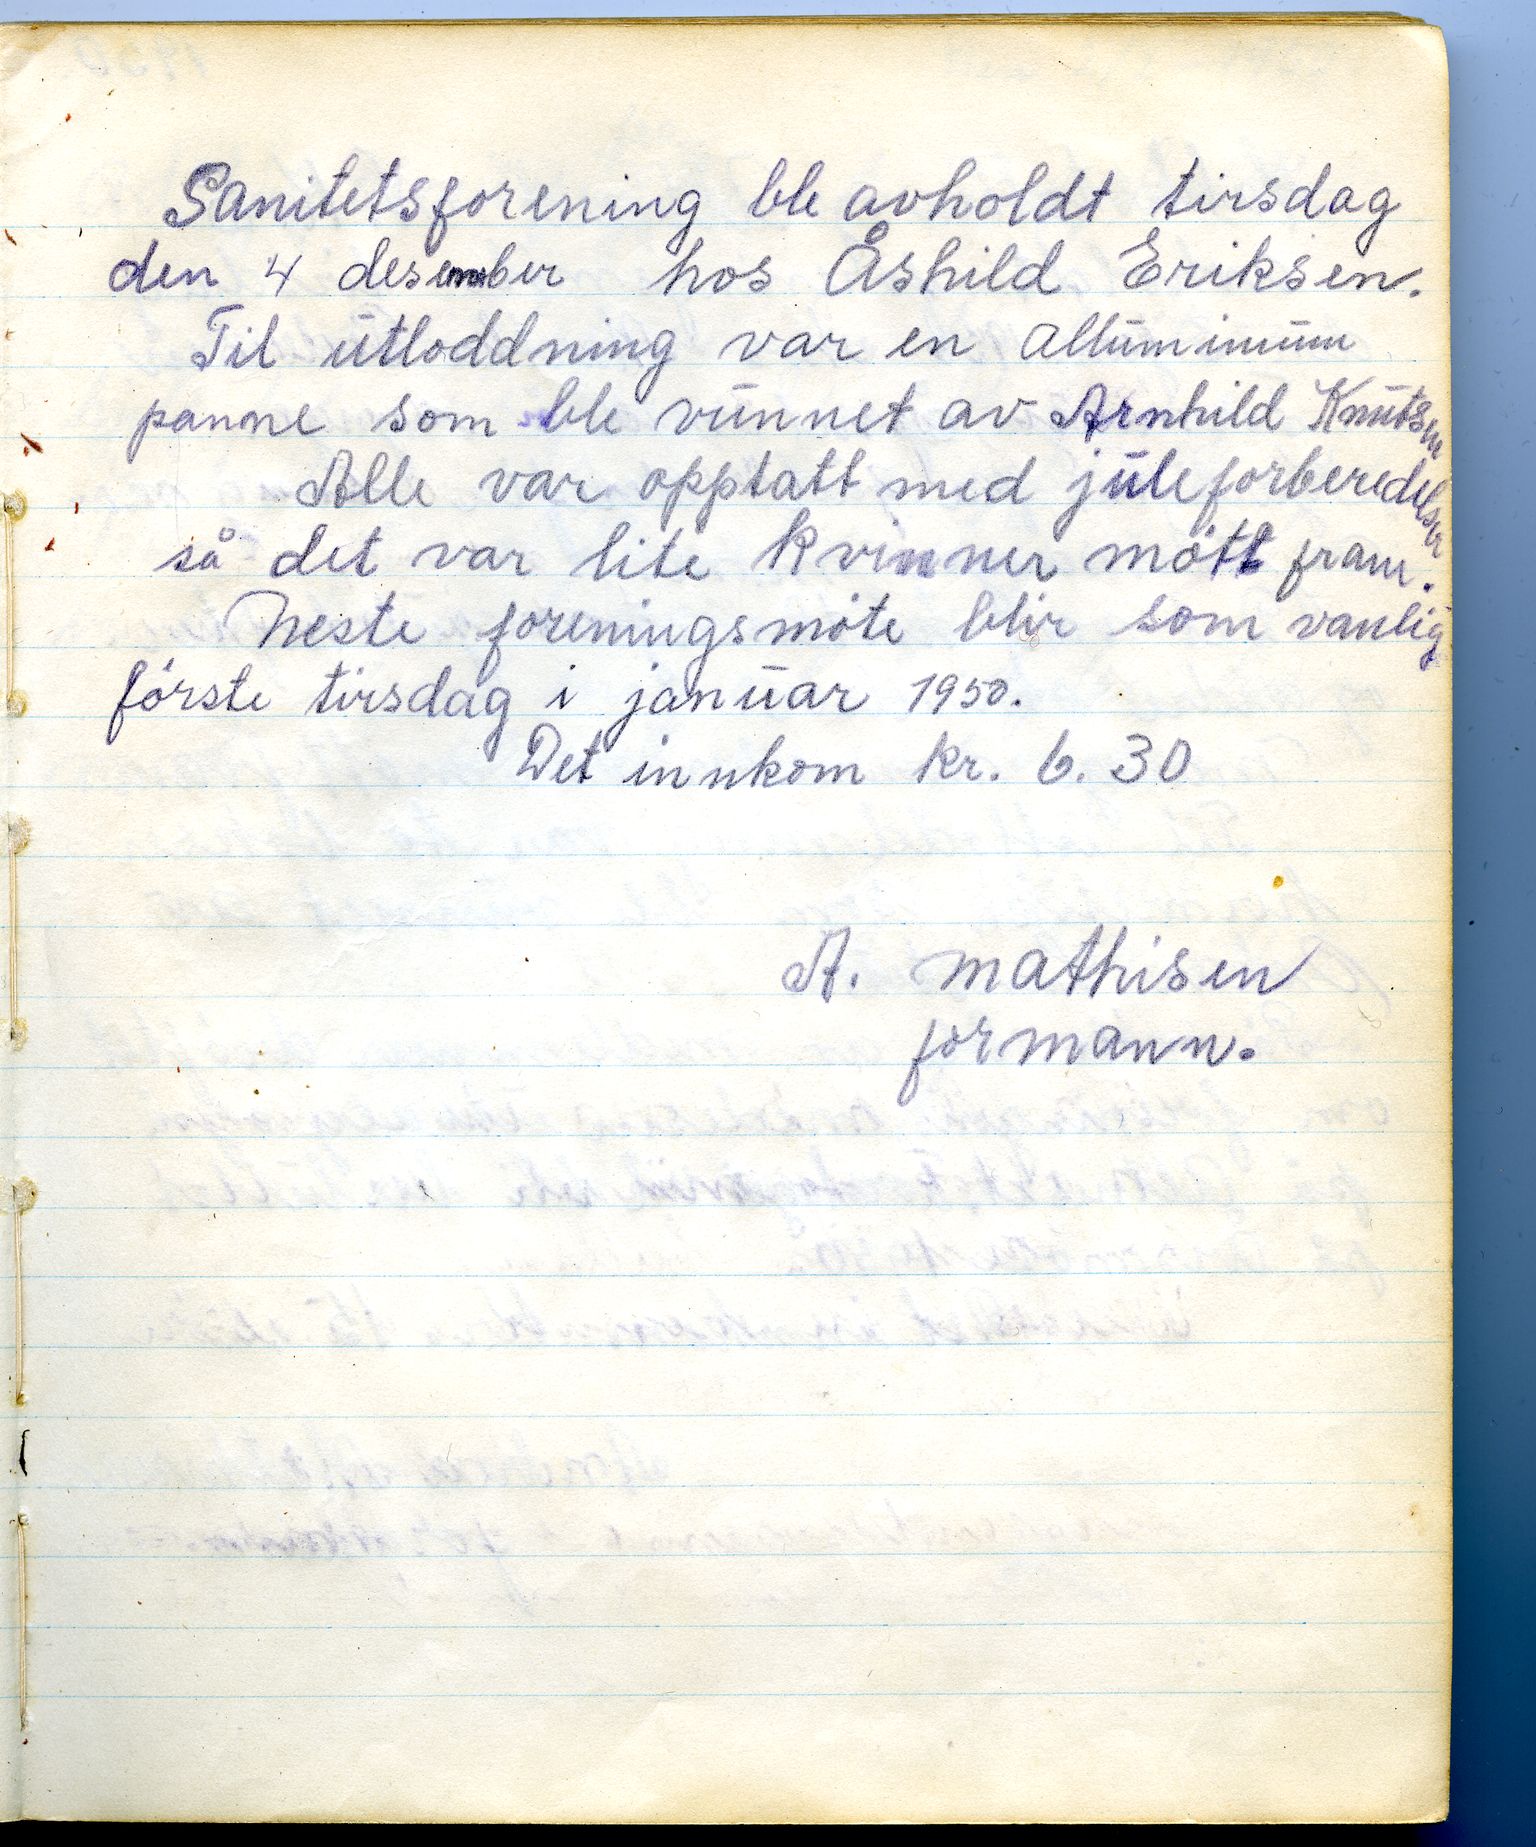 Sanitetsforening ble avholdt tirsdag
den 4 desember hos Åshild Eriksen.
Til utloddning var en alluminium
panne som ble vunnet av Arnhild Knutsen
Alle var opptatt med juleforberedelser
så det var lite kvinner møtt fram.
Neste foreningsmøte blir som vanlig
første tirsdag i januar 1950.
Det innkom kr. 6.30
A. Mathisen
formann.